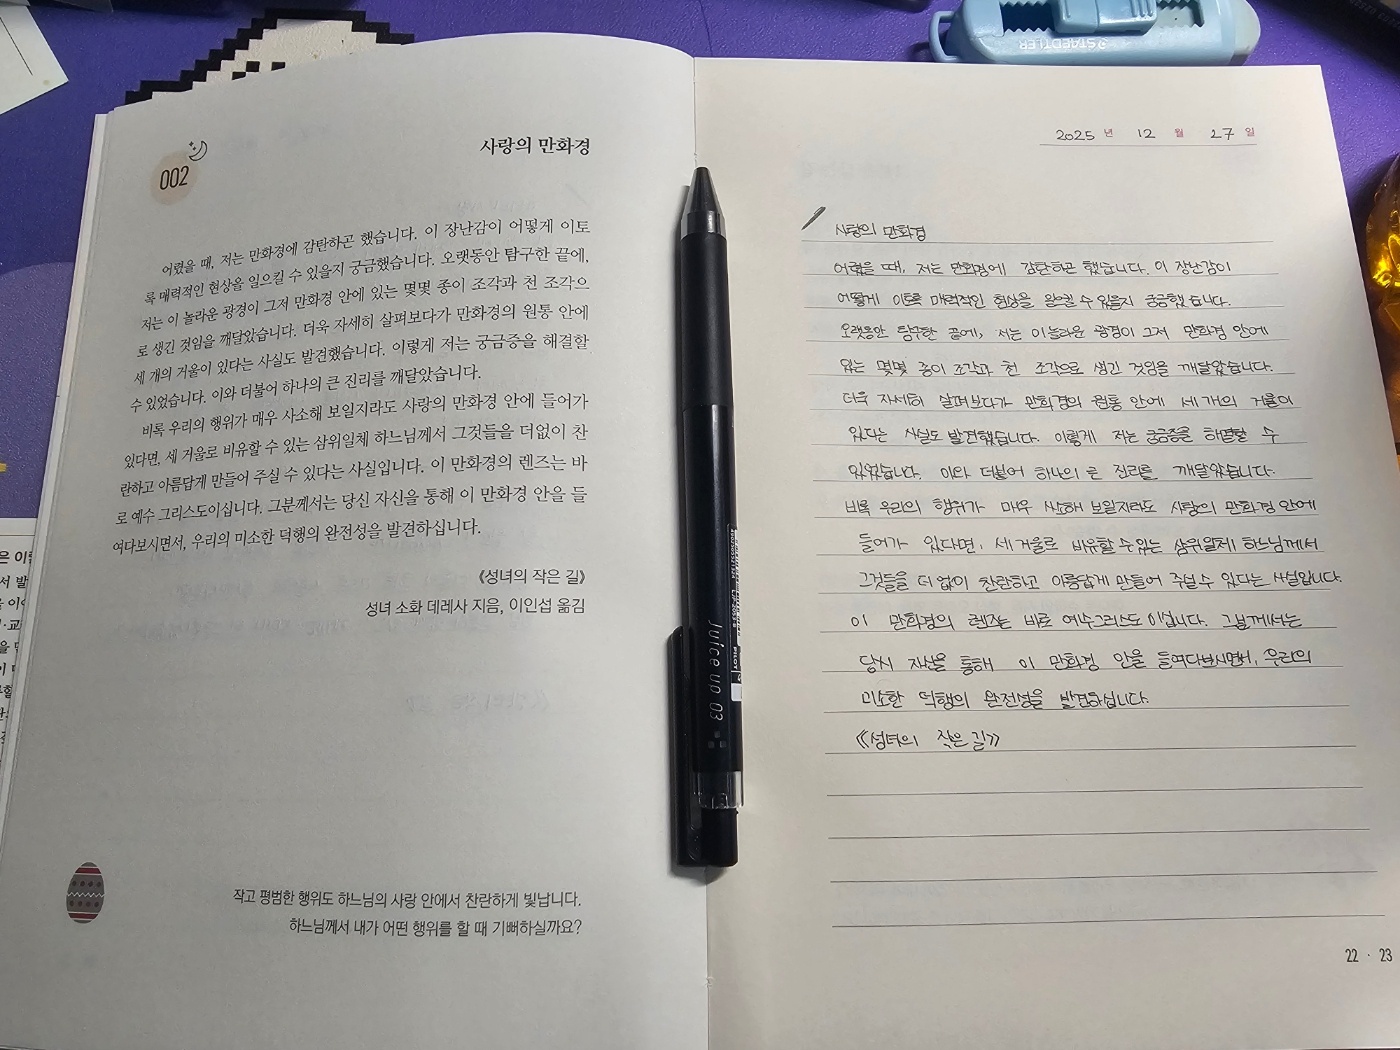 002
사랑의 만화경
어렸을 때, 저는 만화경에 감탄하곤 했습니다. 이 장난감이 어떻게 이토
록 매력적인 현상을 일으킬 수 있을지 궁금했습니다. 오랫동안 탐구한 끝에,
저는 이 놀라운 광경이 그저 만화경 안에 있는 몇몇 종이 조각과 천 조각으
로 생긴 것임을 깨달았습니다. 더욱 자세히 살펴보다가 만화경의 원통 안에
세 개의 거울이 있다는 사실도 발견했습니다. 이렇게 저는 궁금증을 해결할
수 있었습니다. 이와 더불어 하나의 큰 진리를 깨달았습니다.
비록 우리의 행위가 매우 사소해 보일지라도 사랑의 만화경 안에 들어가
있다면, 세 거울로 비유할 수 있는 삼위일체 하느님께서 그것들을 더없이 찬
란하고 아름답게 만들어 주실 수 있다는 사실입니다. 이 만화경의 렌즈는 바
로 예수 그리스도이십니다. 그분께서는 당신 자신을 통해 이 만화경 안을 들
여다보시면서, 우리의 미소한 덕행의 완전성을 발견하십니다.
《성녀의 작은 길》
성녀 소화 데레사 지음, 이인섭 옮김
작고 평범한 행위도 하느님의 사랑 안에서 찬란하게 빛납니다.
하느님께서 내가 어떤 행위를 할 때 기뻐하실까요?
2025 년 12 월 27 일
사랑의 만화경
어렸을 때, 저는 만화경에 감탄하곤 했습니다. 이 장난감이
어떻게 이토록 매력적인 현상을 일으킬 수 있을지 궁금했습니다.
오랫동안 탐구한 끝에, 저는 이 놀라운 광경이 그저 만화경 안에
있는 몇몇 종이 조각과 천 조각으로 생긴 것임을 깨달았습니다.
더욱 자세히 살펴보다가 만화경의 원통 안에 세 개의 거울이
있다는 사실도 발견했습니다. 이렇게 저는 궁금증을 해결할 수
있었습니다. 이와 더불어 하나의 큰 진리를 깨달았습니다.
비록 우리의 행위가 매우 사소해 보일지라도 사랑의 만화경 안에
들어가 있다면, 세 거울로 비유할 수 있는 삼위일체 하느님께서
그것들을 더없이 찬란하고 아름답게 만들어 주실 수 있다는 사실입니다.
이 만화경의 렌즈는 바로 예수그리스도이십니다. 그분께서는
당신 자신을 통해 이 만화경 안을 들여다보시면서, 우리의
미소한 덕행의 완전성을 발견하십니다.
《성녀의 작은 길》
22 · 23
Juice up 03
PILOT
STAEDTLER